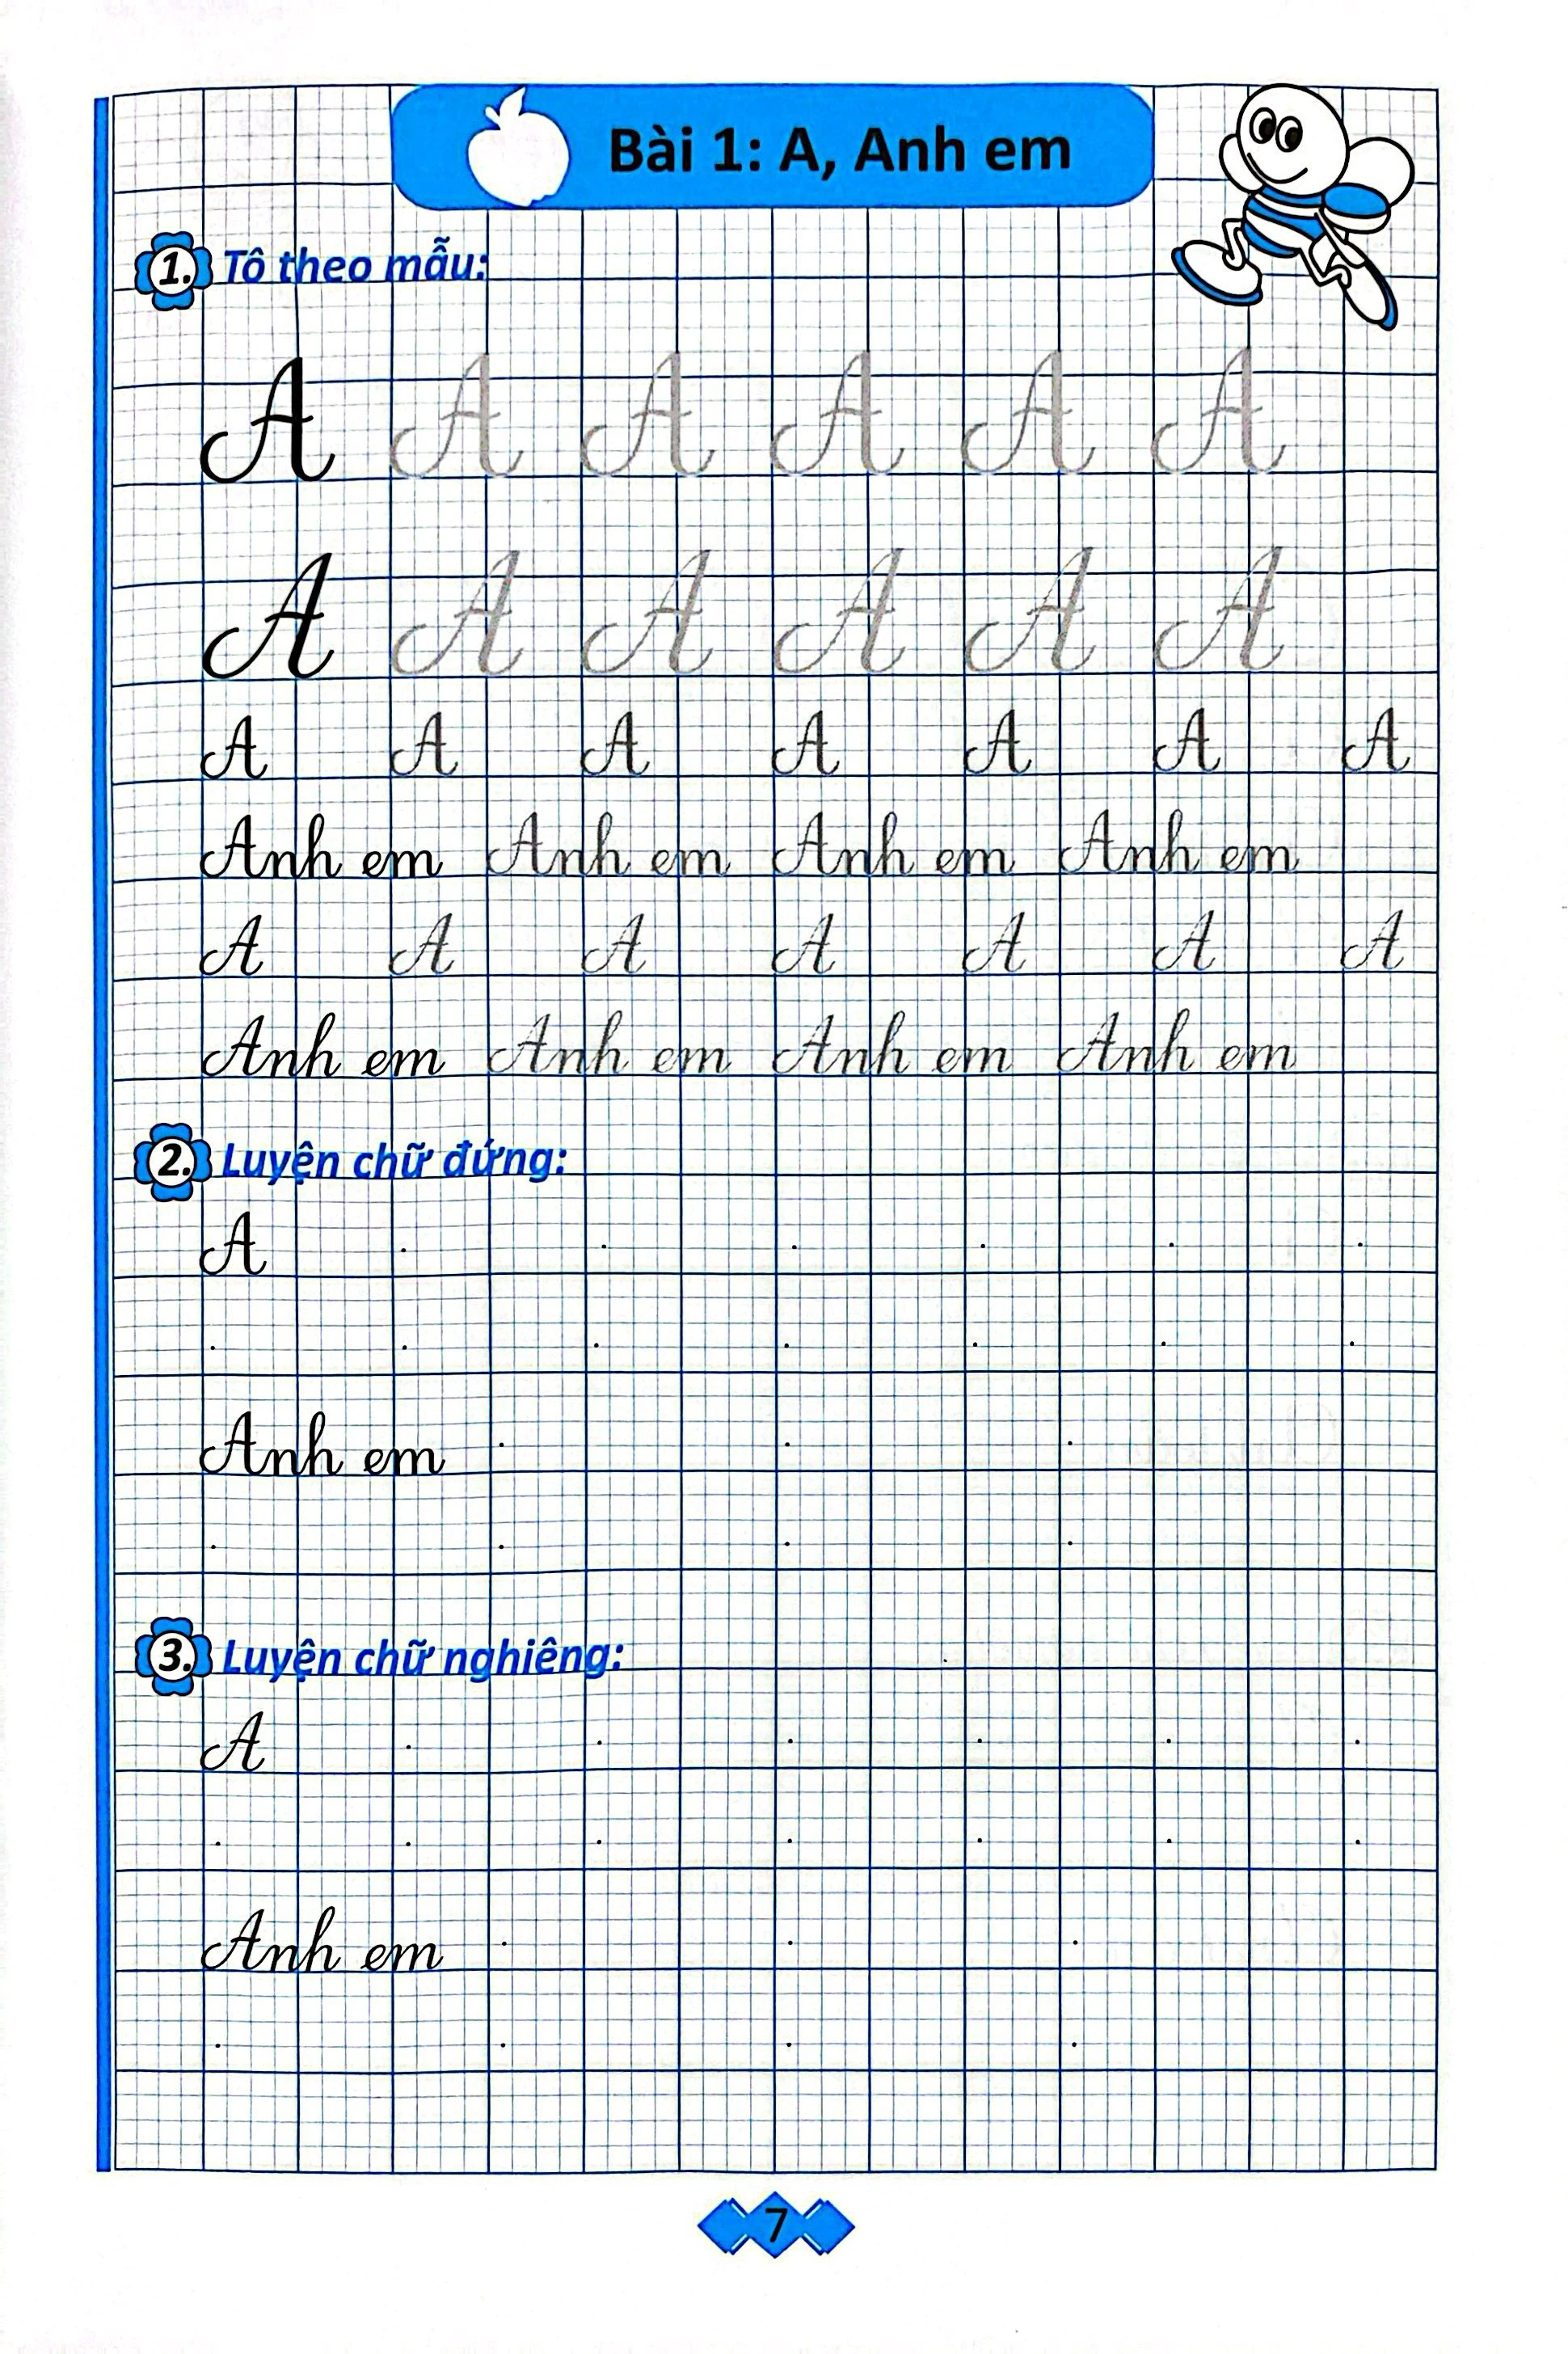 Bài 1: A, Anh em
1. Tô theo mẫu:
A A A A A A
A A A A A A
A A A A A A A
Anh em Anh em Anh em Anh em
A A A A A A A
Anh em Anh em Anh em Anh em
2. Luyện chữ đứng:
A
Anh em
3. Luyện chữ nghiêng:
A
Anh em
7